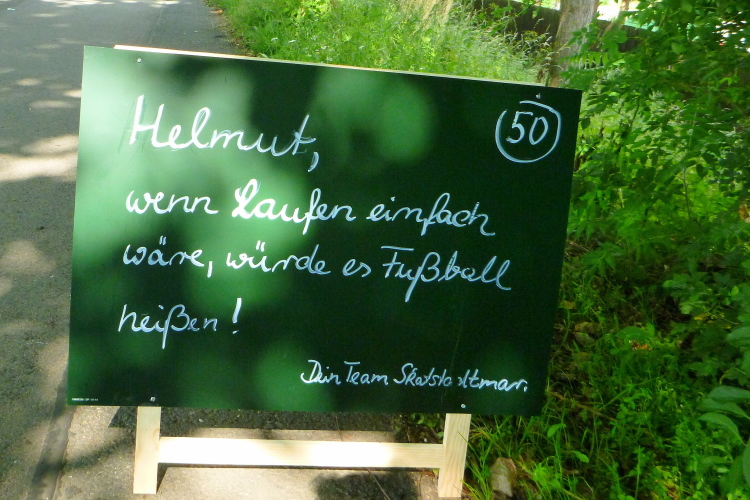 Helmut,
50
wenn Laufen einfach
wäre, würde es Fußball
heißen!
Dein Team Skatstadtmar.